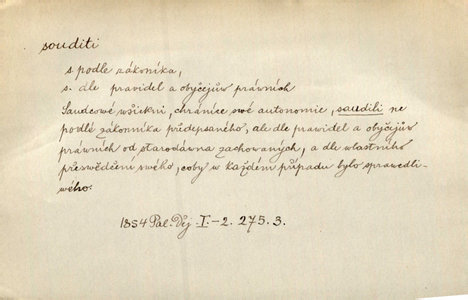 souditi
s podle zákoníka,
s. dle pravidel a obyčejův právních
Saudcowé wšickni, chráníce swé autonomie, saudili ne
podlé zákonníka předepsaného, ale dle prawidel a obyčejůw
práwních od starodáwna zachowaných, a dle wlastního
přeswědčení swého, coby w každém případu bylo sprawedli-
wého.
1854 Pal. Děj. I.-2. 275.3.